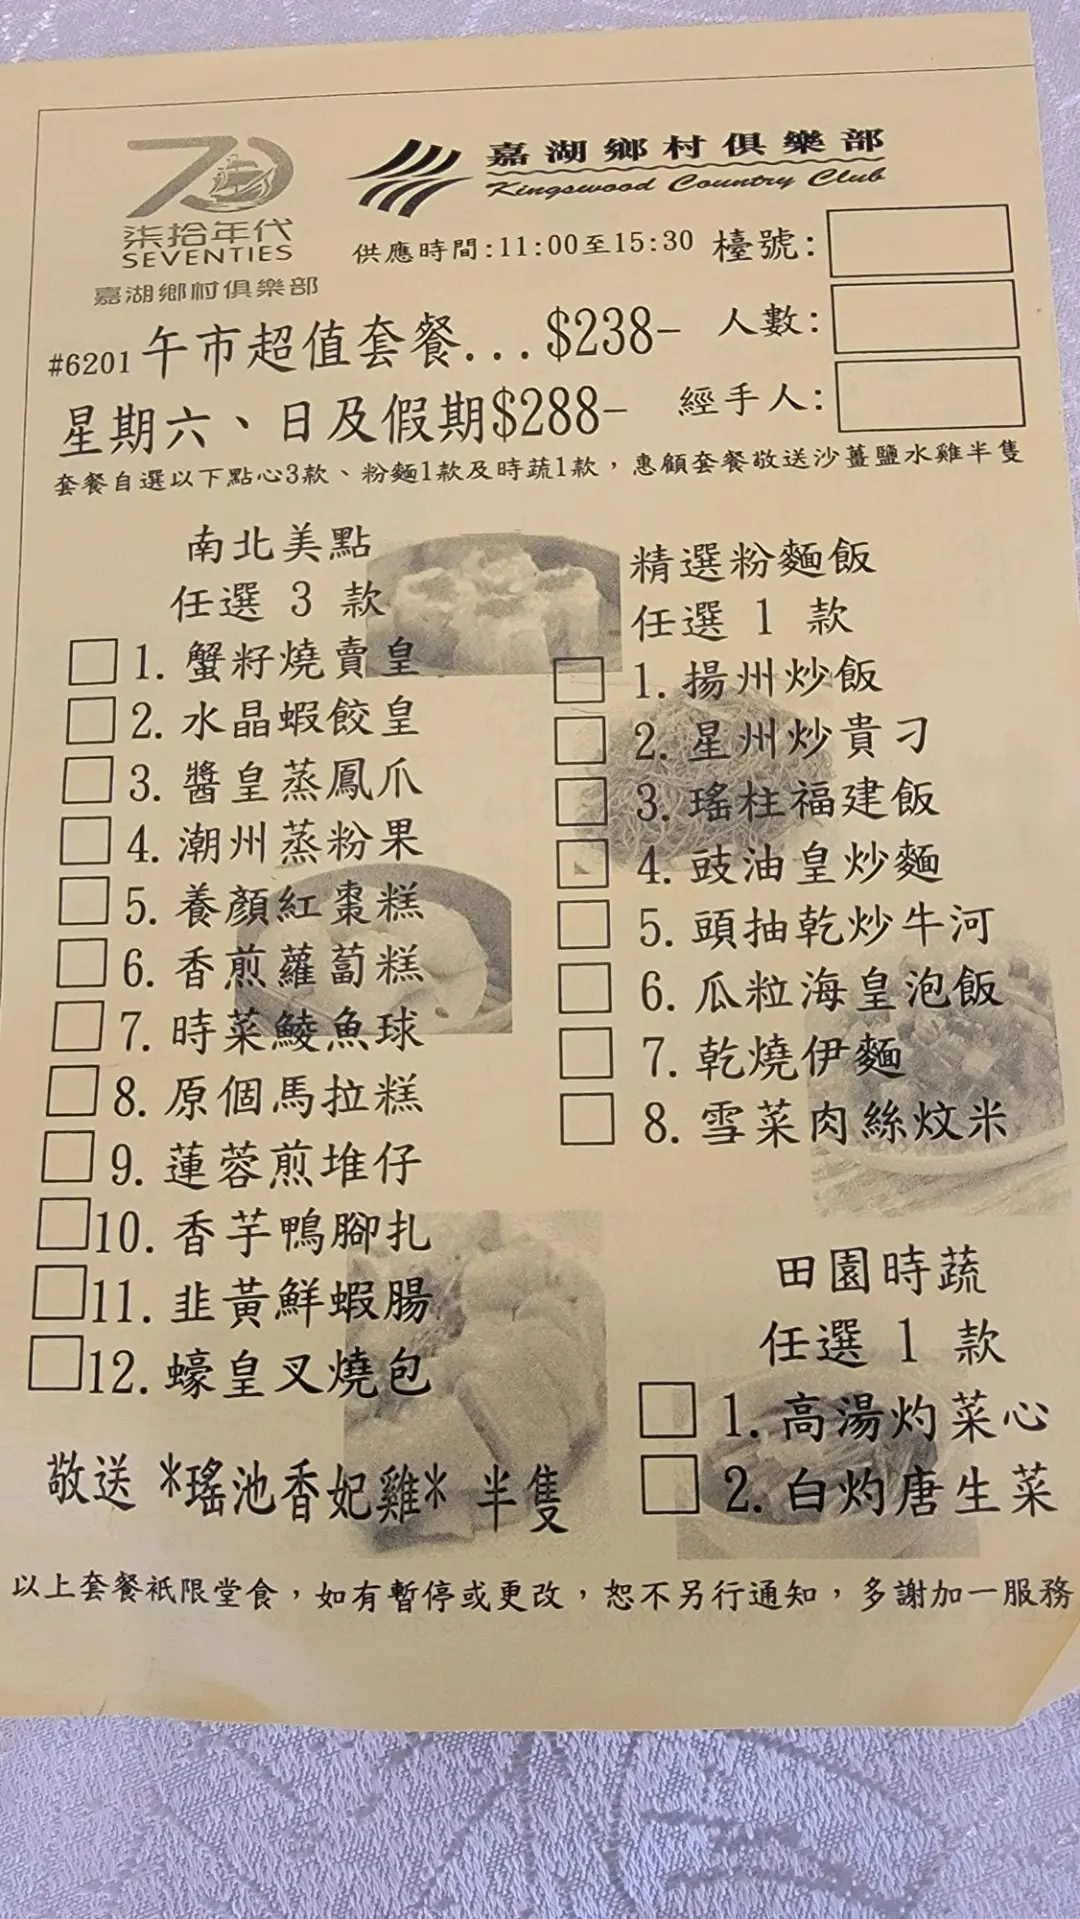 70
柒拾年代
SEVENTIES
嘉湖鄉村俱樂部
嘉湖鄉村俱樂部
Kingswood Country Club
供應時間:11:00至15:30
檯號:
#6201 午市超值套餐...$238-
人數:
星期六、日及假期$288-
經手人:
套餐自選以下點心3款、粉麵1款及時蔬1款，惠顧套餐敬送沙薑鹽水雞半隻
南北美點
任選 3 款
1. 蟹籽燒賣皇
2. 水晶蝦餃皇
3. 醬皇蒸鳳爪
4. 潮州蒸粉果
5. 養顏紅棗糕
6. 香煎蘿蔔糕
7. 時菜鯪魚球
8. 原個馬拉糕
9. 蓮蓉煎堆仔
10. 香芋鴨腳扎
11. 韭黃鮮蝦腸
12. 蠔皇叉燒包
敬送 *瑤池香妃雞* 半隻
精選粉麵飯
任選 1 款
1. 揚州炒飯
2. 星州炒貴刁
3. 瑤柱福建飯
4. 豉油皇炒麵
5. 頭抽乾炒牛河
6. 瓜粒海皇泡飯
7. 乾燒伊麵
8. 雪菜肉絲炆米
田園時蔬
任選 1 款
1. 高湯灼菜心
2. 白灼唐生菜
以上套餐祇限堂食，如有暫停或更改，恕不另行通知，多謝加一服務